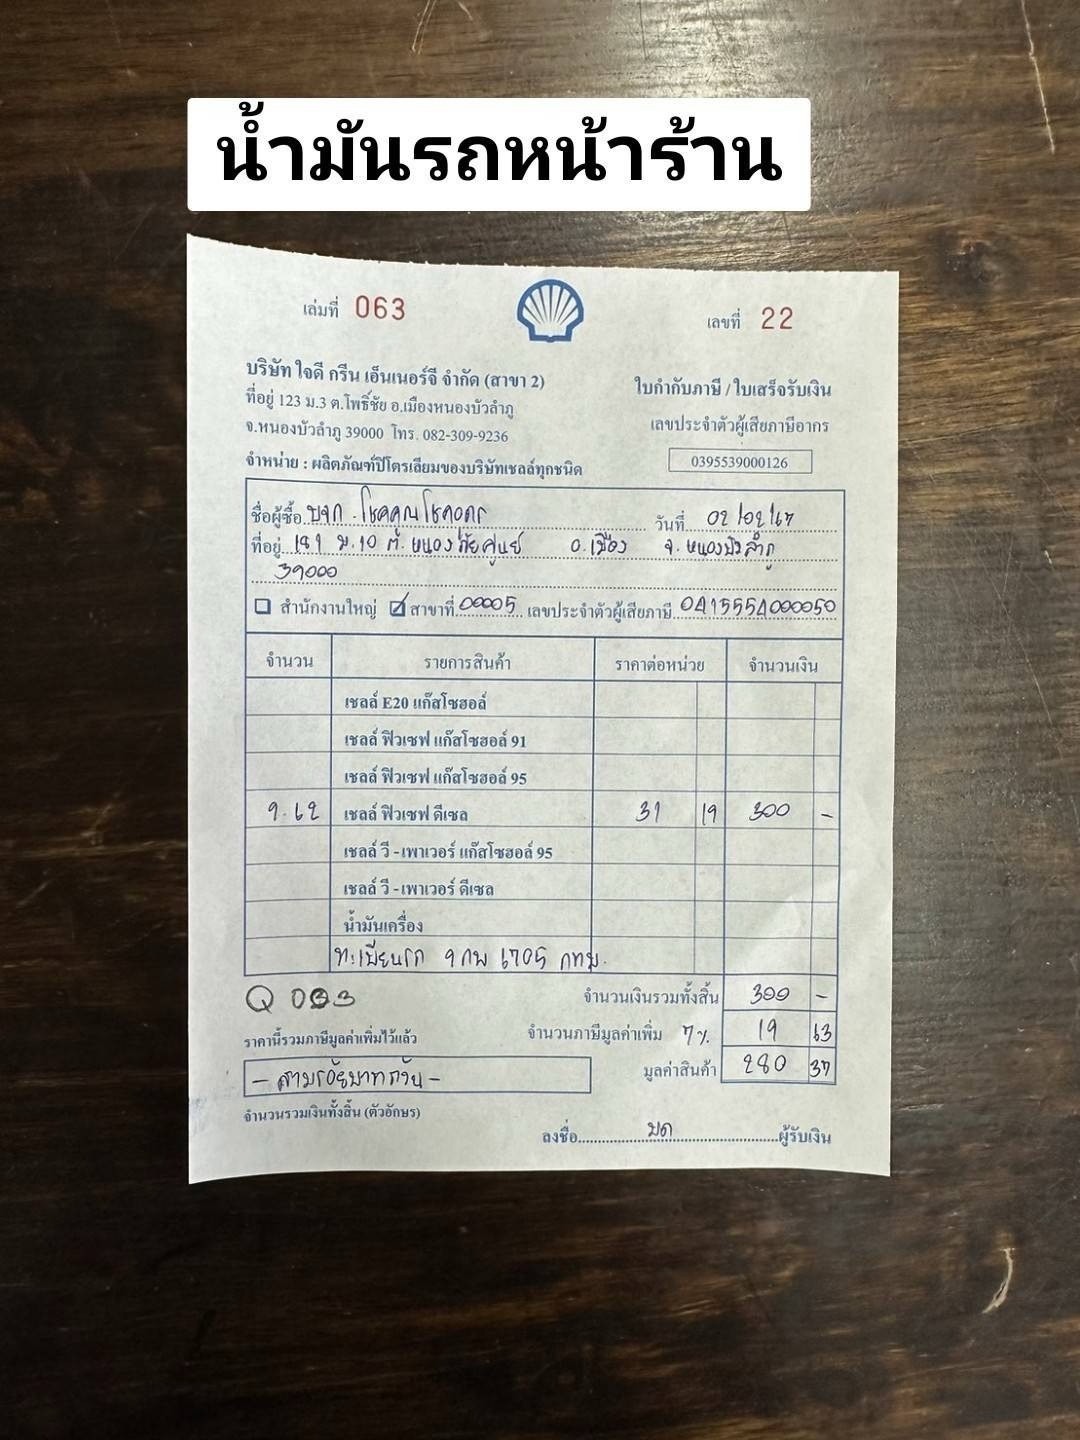 น้ำมันรถหน้าร้าน
เล่มที่ 063
เลขที่ 22
บริษัท ใจดี กรีน เอ็นเนอร์จี จำกัด (สาขา 2)
ที่อยู่ 123 ม.3 ต.โพธิ์ชัย อ.เมืองหนองบัวลำภู
จ.หนองบัวลำภู 39000 โทร. 082-309-9236
จำหน่าย : ผลิตภัณฑ์ปิโตรเลียมของบริษัทเชลล์ทุกชนิด
ใบกำกับภาษี / ใบเสร็จรับเงิน
เลขประจำตัวผู้เสียภาษีอากร
0395539000126
ชื่อผู้ซื้อ บจก. โชคคูณโชค วันที่ 02/02/67
ที่อยู่ 181 ม.10 ต. หนองภัยศูนย์ อ.เมือง จ.หนองบัวลำภู
39000
สำนักงานใหญ่ สาขาที่ 00005 เลขประจำตัวผู้เสียภาษี 0415554000050
จำนวน รายการสินค้า ราคาต่อหน่วย จำนวนเงิน
เชลล์ E20 แก๊สโซฮอล์
เชลล์ ฟิวเซฟ แก๊สโซฮอล์ 91
เชลล์ ฟิวเซฟ แก๊สโซฮอล์ 95
9.62 เชลล์ ฟิวเซฟ ดีเซล 31 19 300 -
เชลล์ วี -เพาเวอร์ แก๊สโซฮอล์ 95
เชลล์ วี -เพาเวอร์ ดีเซล
น้ำมันเครื่อง
ทะเบียนรถ 9กพ 6705 กทม.
จำนวนเงินรวมทั้งสิ้น 300 -
จำนวนภาษีมูลค่าเพิ่ม 7% 19 63
มูลค่าสินค้า 280 37
ราคานี้รวมภาษีมูลค่าเพิ่มไว้แล้ว
- สามร้อยบาทถ้วน -
จำนวนรวมเงินทั้งสิ้น (ตัวอักษร)
ลงชื่อ มด ผู้รับเงิน